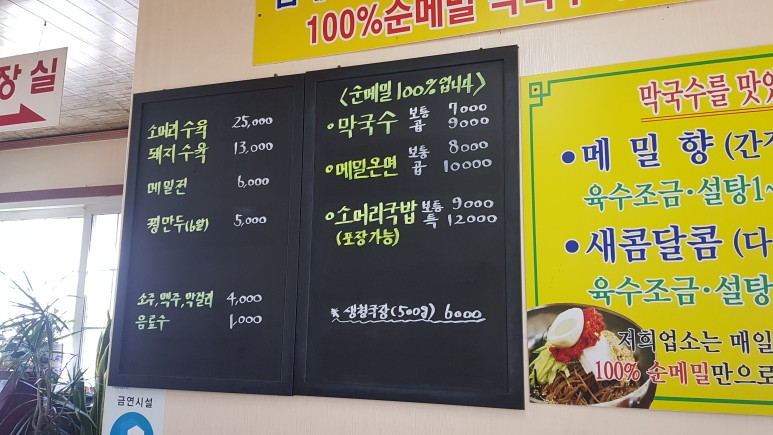 100%순메밀 막국수
장실
소머리수육 25,000
돼지수육 13,000
메밀전 6,000
꿩만두(6알) 5,000
소주, 맥주, 막걸리 4,000
음료수 1,000
<순메밀 100% 입니다>
막국수 보통 7000
곱 9000
메밀온면 보통 8000
곱 10000
소머리국밥 보통 9000
(포장가능) 특 12000
※ 생청국장(500g) 6000
막국수를 맛있
•메밀향(간
육수조금·설탕1~
•새콤달콤(다
육수조금·설탕
저희업소는 매일
100% 순메밀만으로
금연시설